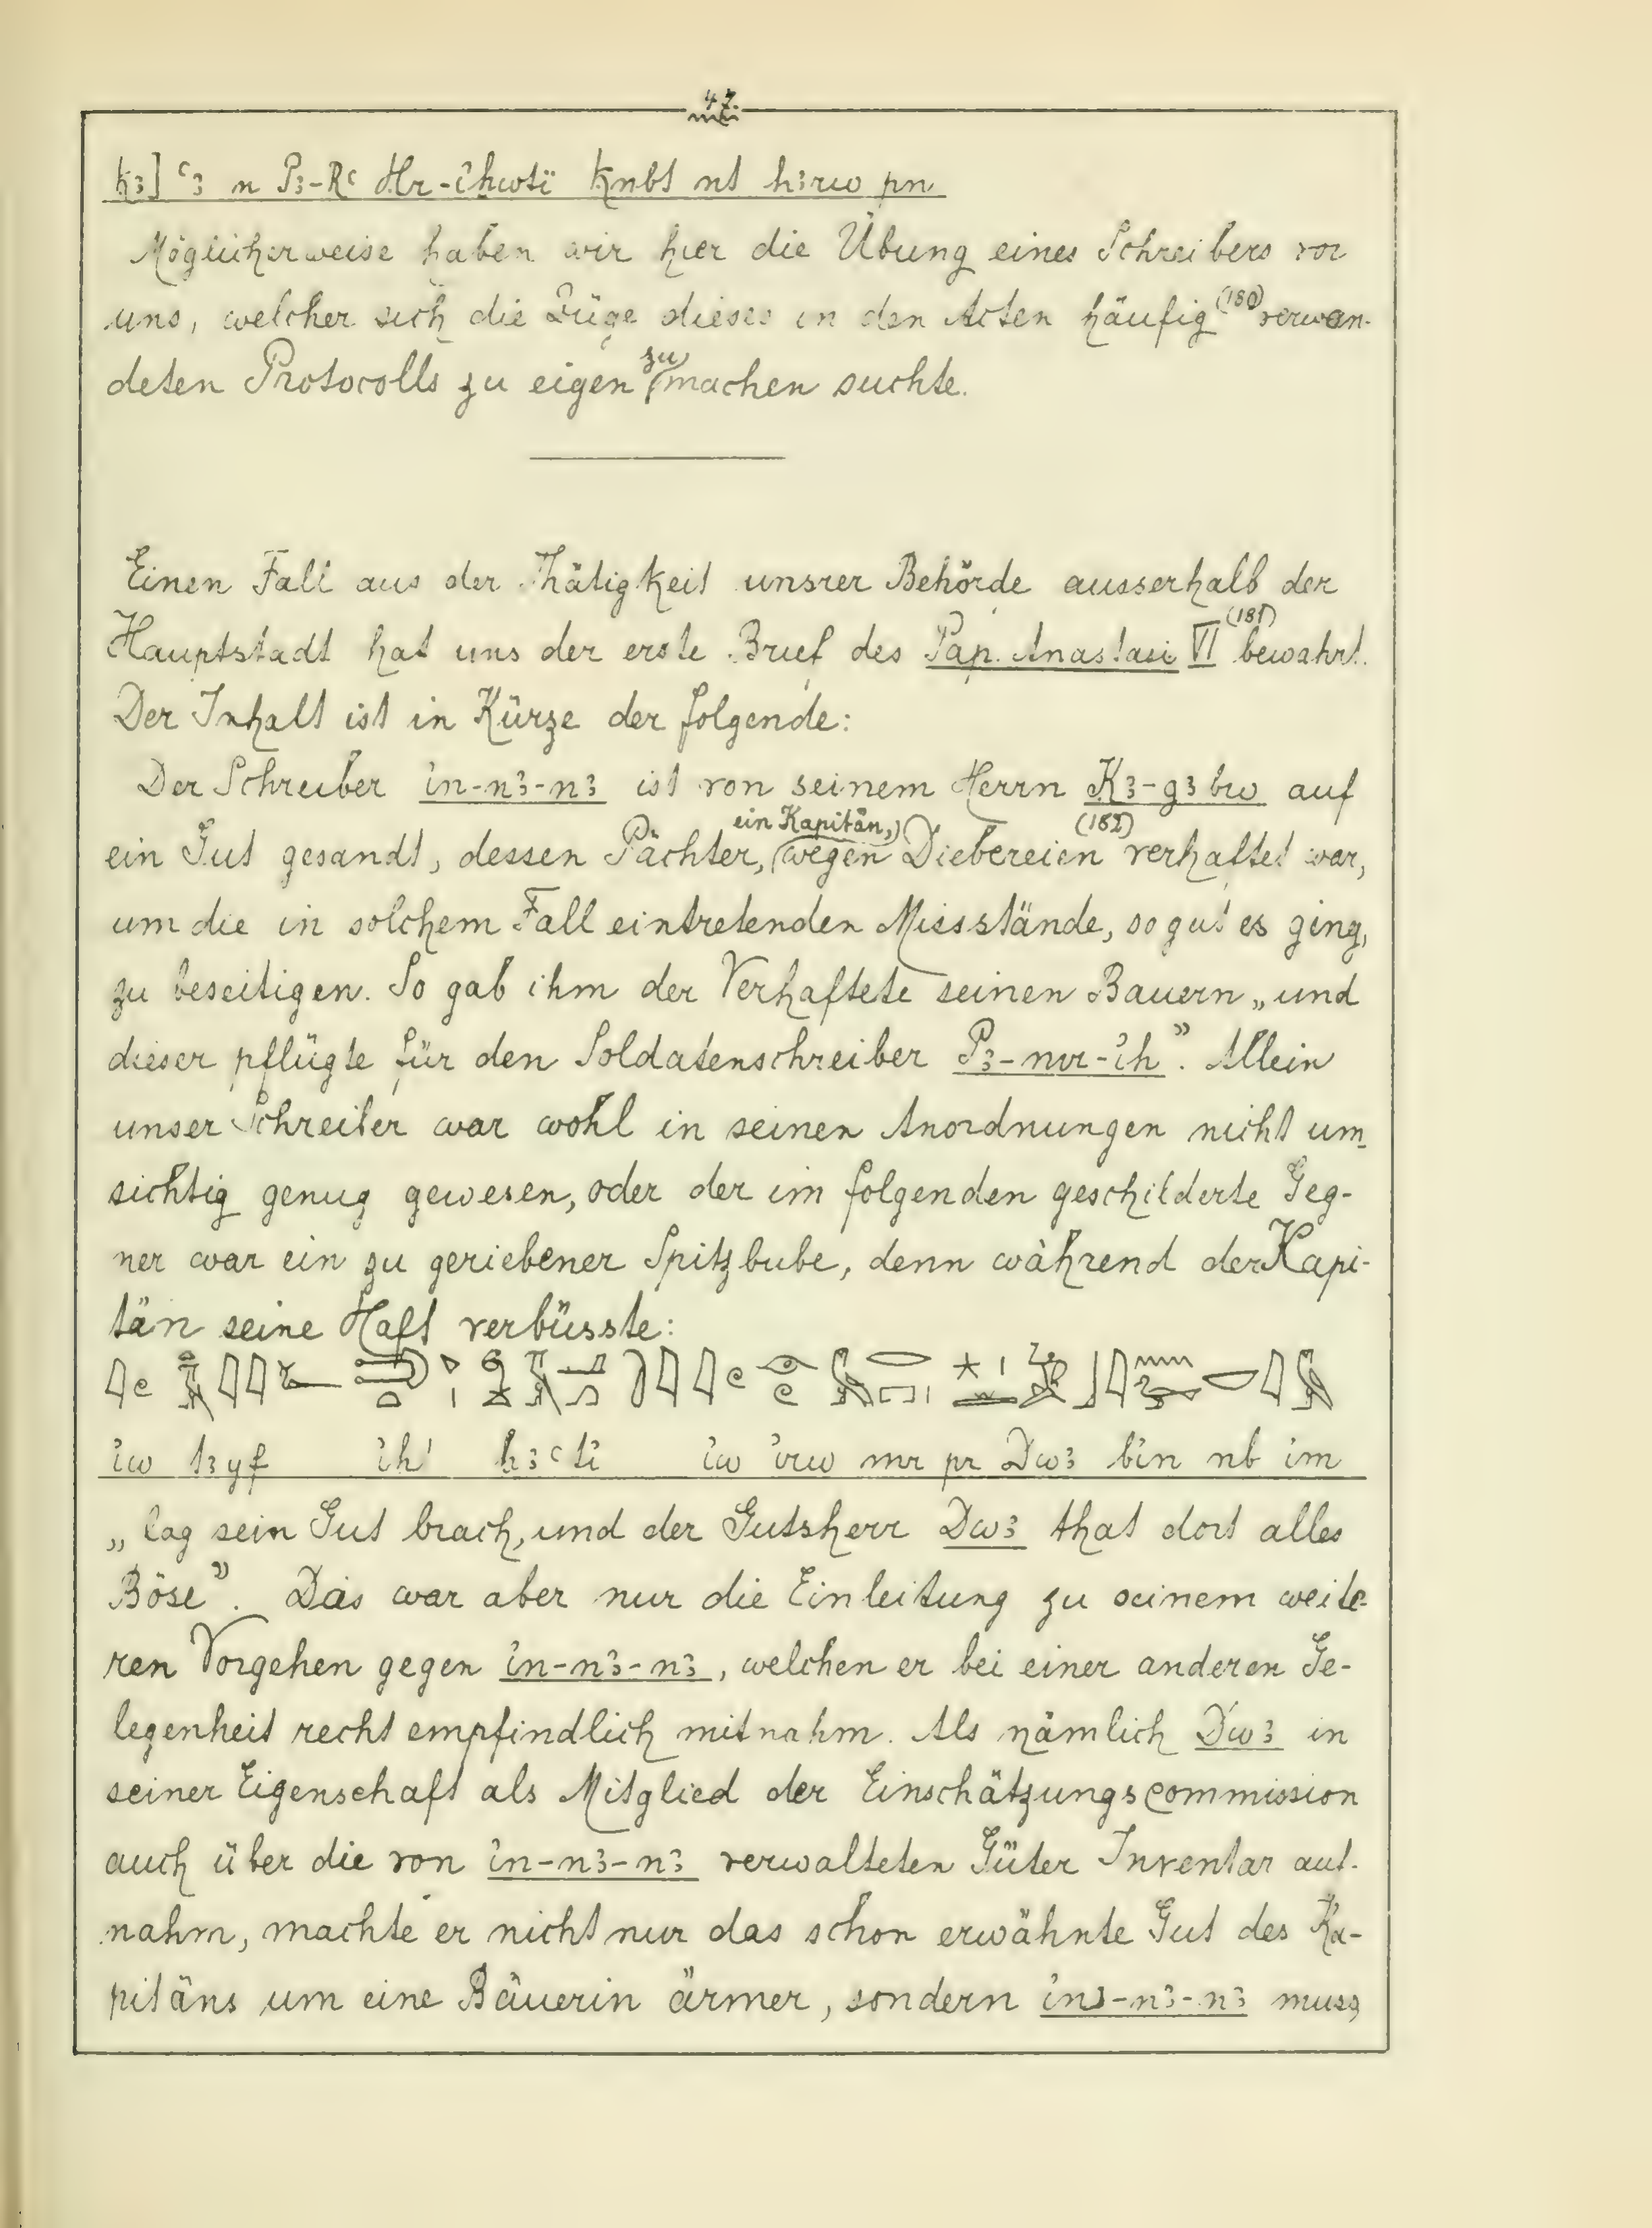 47.
k3] ꜥ3 n P3-Rꜥ Hr-ỉhwti knbt nt h3rw pn
Möglicherweise haben wir hier die Übung eines Schreibers vor
uns, welcher sich die Züge dieses in den Acten häufig (180) verwan-
deten Protocolls zu eigen zu machen suchte.
Einen Fall aus der Thätigkeit unsrer Behörde ausserhalb der
Hauptstadt hat uns der erste Brief des Pap. Anastasi VI (181) bewahrt.
Der Inhalt ist in Kürze der folgende:
Der Schreiber ỉn-n3-n3 ist von seinem Herrn K3-g3bw auf
ein Gut gesandt, dessen Pächter, ein Kapitän, wegen Diebereien (182) verhaftet war,
um die in solchem Fall eintretenden Missstände, so gut es ging,
zu beseitigen. So gab ihm der Verhaftete seinen Bauern „und
dieser pflügte für den Soldatenschreiber P3-mr-ỉh”. Allein
unser Schreiber war wohl in seinen Anordnungen nicht um-
sichtig genug gewesen, oder der im folgenden geschilderte Geg-
ner war ein zu geriebener Spitzbube, denn während der Kapi-
tän seine Haft verbüsste:
ỉw t3yf ỉht h3ꜥti ỉw ỉrw mr pr Dw3 bỉn nb ỉm
„lag sein Gut brach, und der Gutsherr Dw3 that dort alles
Böse”. Das war aber nur die Einleitung zu seinem weite-
ren Vorgehen gegen ỉn-n3-n3, welchen er bei einer anderen Ge-
legenheit recht empfindlich mitnahm. Als nämlich Dw3 in
seiner Eigenschaft als Mitglied der Einschätzungscommission
auch über die von ỉn-n3-n3 verwalteten Güter Inventar auf-
nahm, machte er nicht nur das schon erwähnte Gut des Ka-
pitäns um eine Bäuerin ärmer, sondern ỉn3-n3-n3 muss